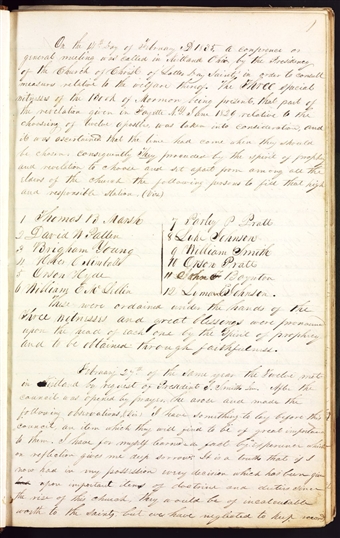 1
On the 14th Day of February AD 1835 a conference or
general meeting was called in Kirtland Ohio by the Presidency
of the Church of Christ of Latter Day Saints, in order to consult
measures relative to the welfare thereof. The three special
witnesses of the Book of Mormon being present, that part of
the revelation given in Fayette June 1829 relative to the
choosing of twelve apostles was taken into consideration, and
it was ascertained that the time had come when they should
be chosen, consequently they proceeded by the spirit of prophecy
and revelation to choose and set apart from among all the
elders of the church the following persons to fill that high
and responsible station. (Viz)
1 Thomas B. Marsh
2 David W Patten
3 Brigham Young
4 Heber C Kimball
5 Orson Hyde
6 William E. McLellin
7 Parley P Pratt
8 Luke Johnson
9 William Smith
10 Orson Pratt
11 John F Boynton
12 Lyman Johnson.
These were ordained under the hands of the
three witnesses and great blessings were pronounced
upon the head of each one by the spirit of prophecy
and to be obtained through faithfulness.
February 27th of the same year the Twelve met
in Kirtland by request of President J. Smith Jun. After the
council was opened by prayer he arose and made the
following observations, (Viz) I have something to lay before this
council, an item which they will find to be of great importance
to them. I have for myself learned a fact by experience which
on reflection gives me deep sorrow. It is a truth that if I
now had in my possession every decision which has been given
upon important items of doctrine and duties since
the rise of this church, they would be of incalculable
worth to the saints, but we have neglected to keep record